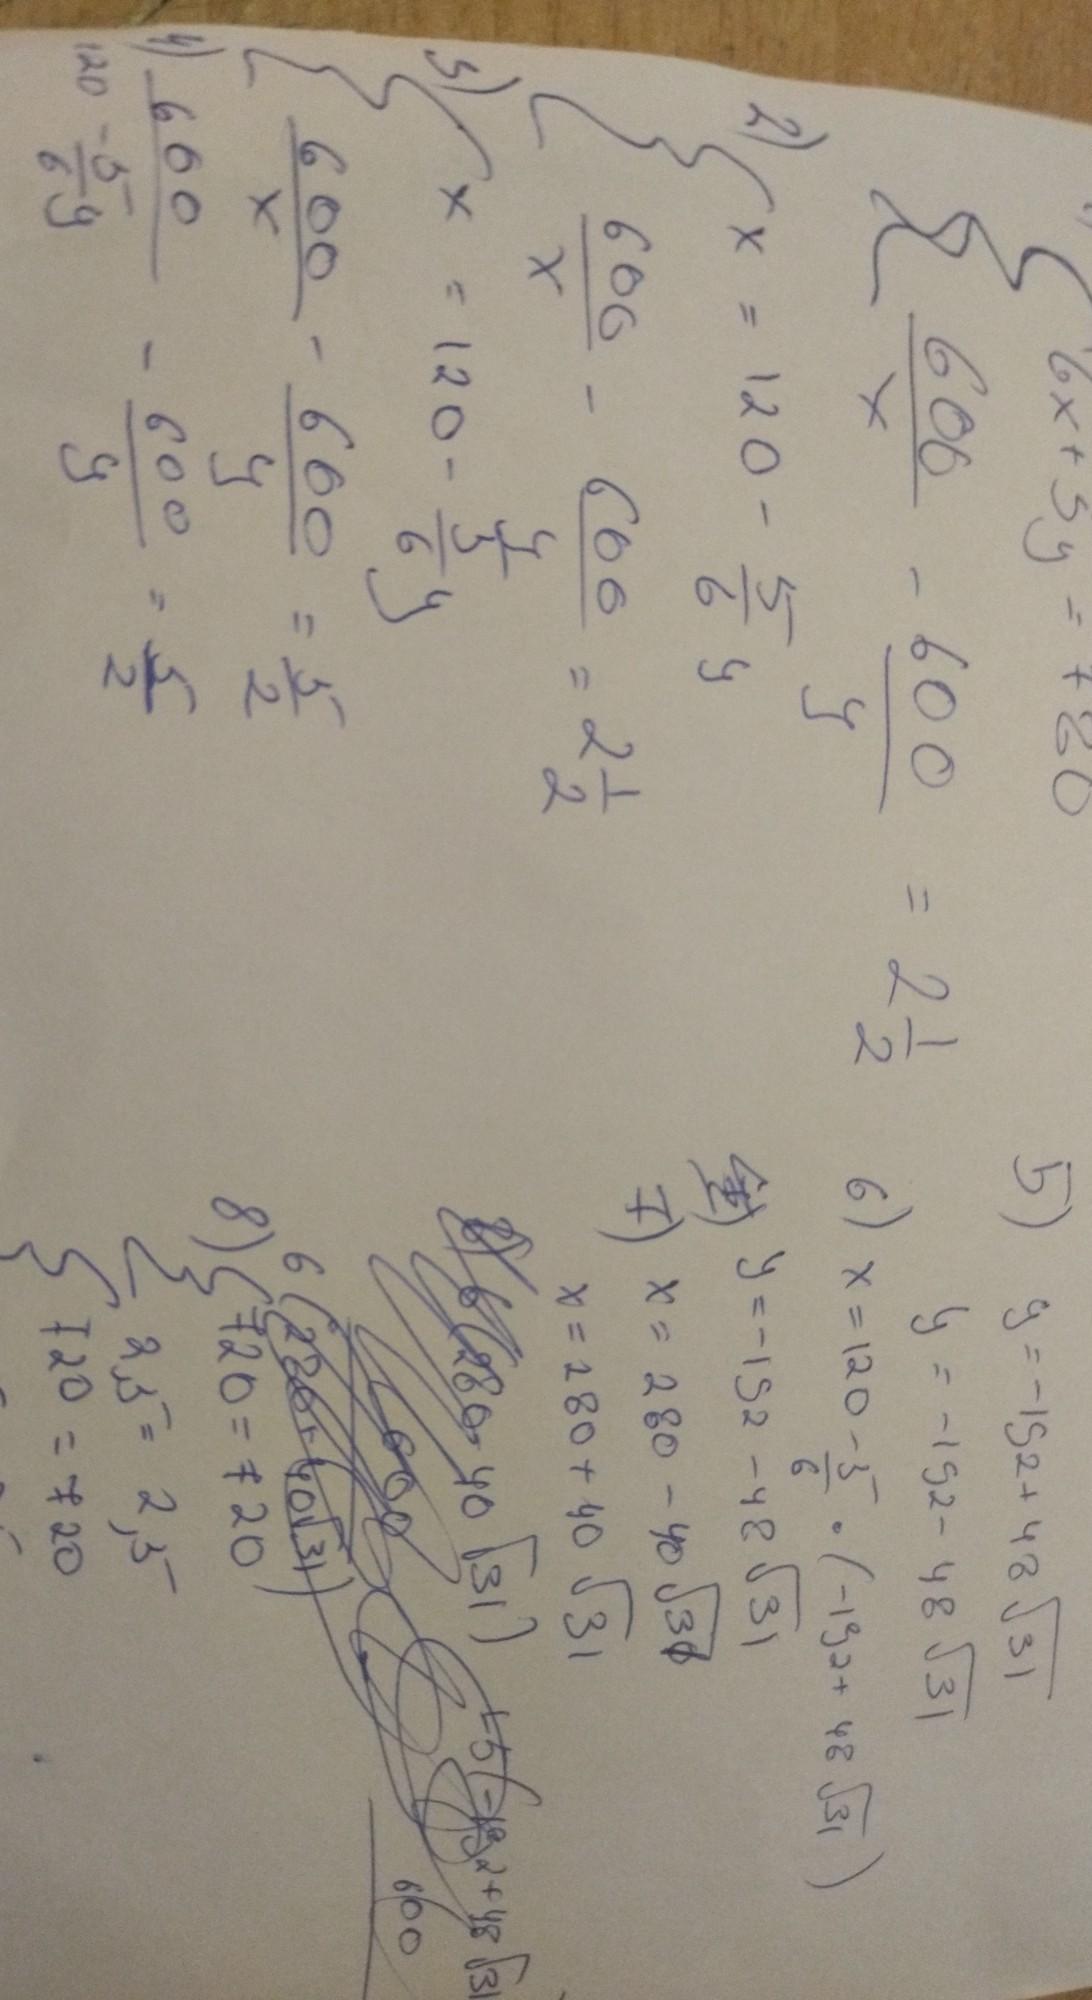 6x+5y = 720
600/x - 600/y = 2 1/2
2) x = 120 - 5/6 y
600/x - 600/y = 2 1/2
3) x = 120 - 5/6 y
600/x - 600/y = 5/2
4) 600/(120 - 5/6 y) - 600/y = 5/2
5) y = -192 + 48√31
y = -192 - 48√31
6) x = 120 - 5/6 · (-192 + 48√31)
y = -192 - 48√31
7) x = 280 - 40√31
x = 280 + 40√31
8) 720 = 720
2,5 = 2,5
720 = 720